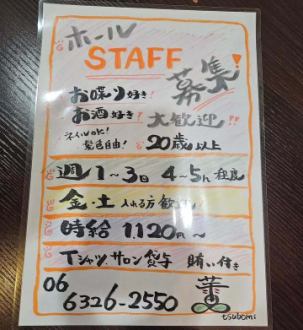 ホール
STAFF
募集!
お喋り好き!
お酒好き! 大歓迎!!
ネイルok!
髪色自由! 20歳以上
週1~3日 4~5h程度
金・土 入れる方歓迎
時給 1120円~
Tシャツ、サロン貸与 賄い付き
06
6326-2550
蕾
tsubomi